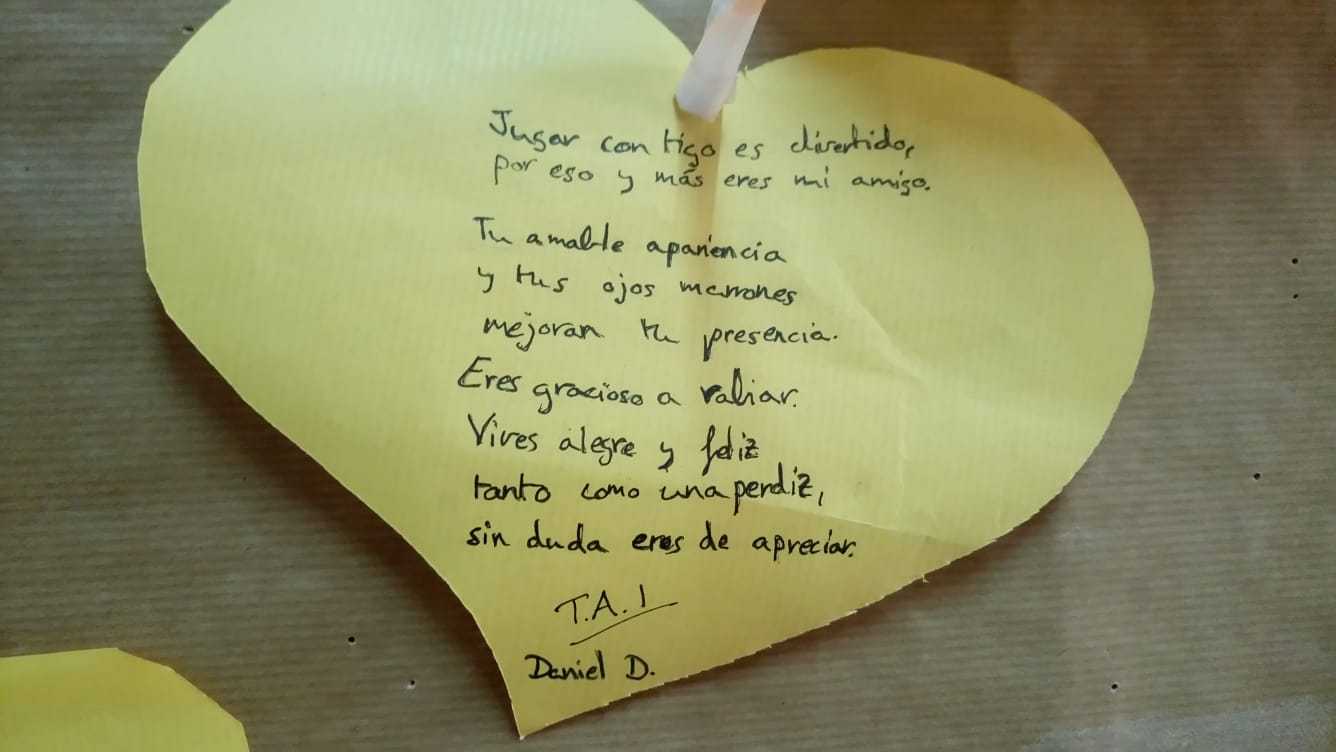 Jugar contigo es divertido,
por eso y más eres mi amigo.
Tu amable apariencia
y tus ojos marrones
mejoran tu presencia.
Eres gracioso a rabiar.
Vives alegre y feliz
tanto como una perdiz,
sin duda eres de apreciar.
T.A.I
Daniel D.